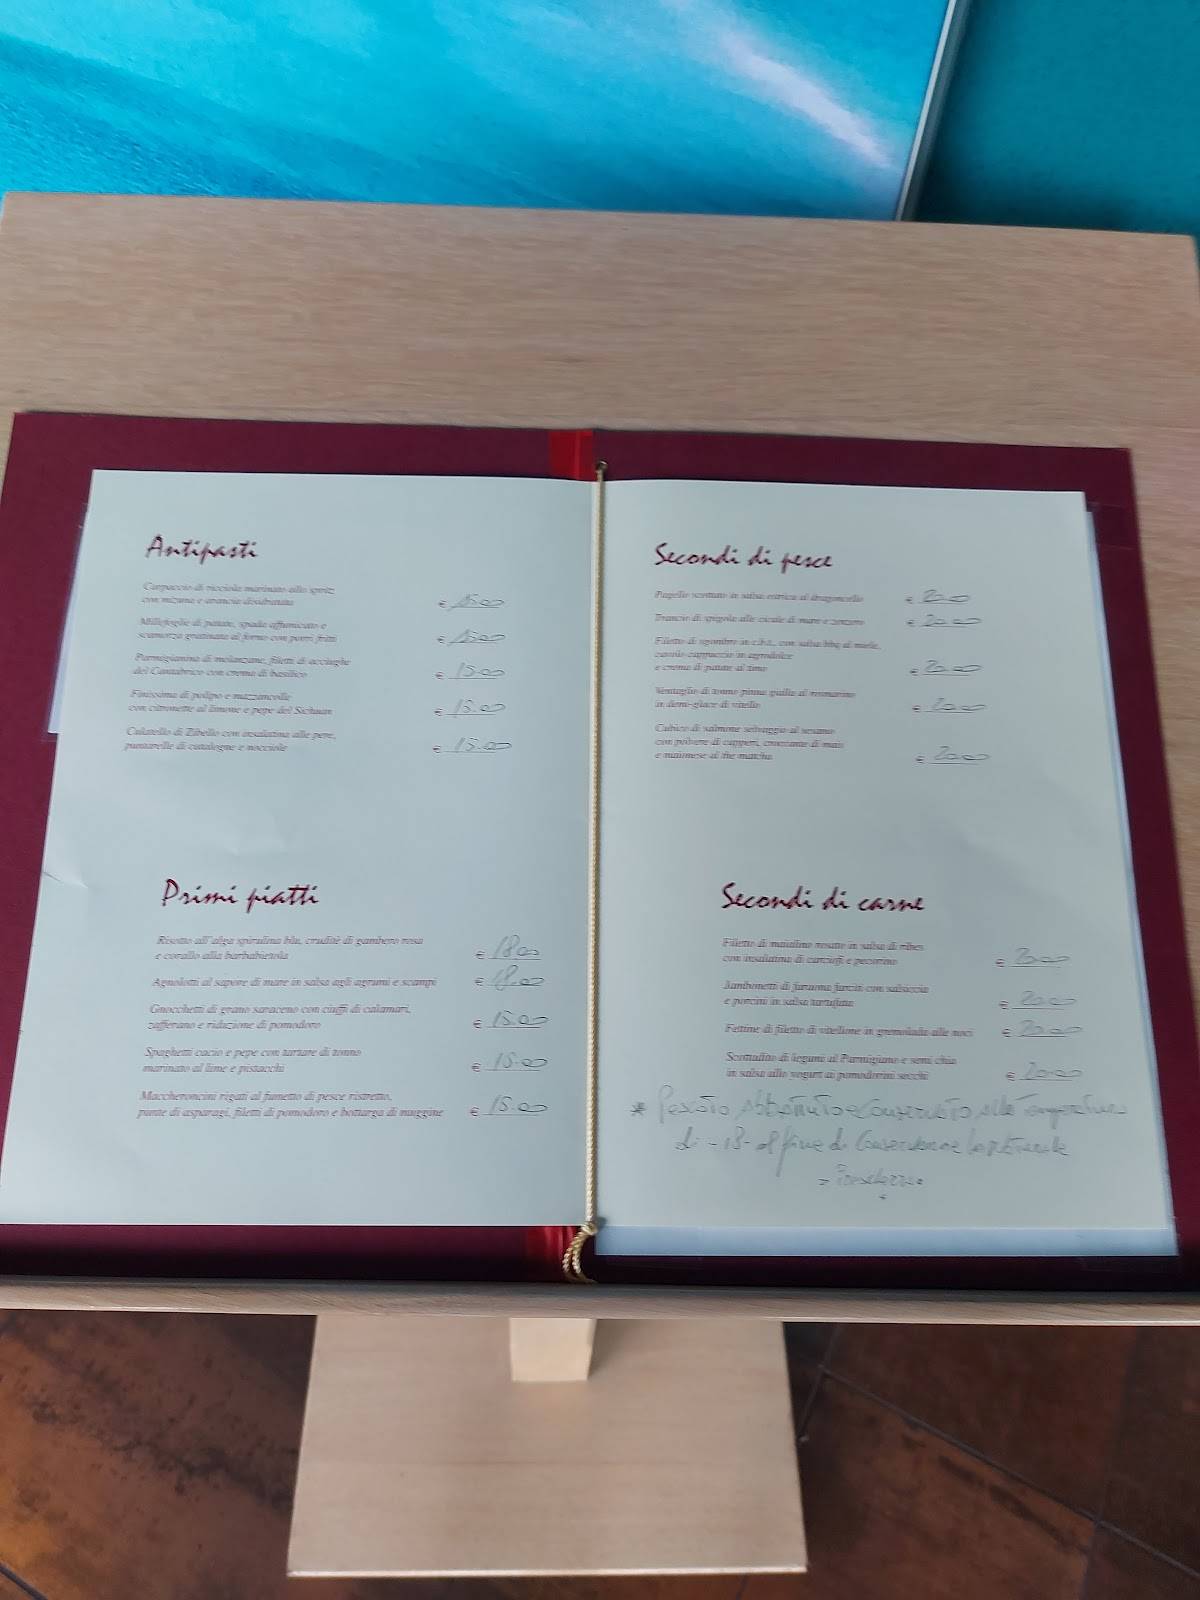 Antipasti
Carpaccio di ricciola marinato allo spritz
con mizuna e arancia disidratata
€ 15.00
Millefoglie di patate, spada affumicato e
scamorza gratinata al forno con porri fritti
€ 15.00
Parmigianina di melanzane, filetti di acciughe
del Cantabrico con crema di basilico
€ 15.00
Finissima di polipo e mazzancolle
con citronette al limone e pepe del Sichuan
€ 15.00
Culatello di Zibello con insalatina alle pere,
puntarelle di catalogna e nocciole
€ 15.00
Primi piatti
Risotto all'alga spirulina blu, crudité di gambero rosa
e corallo alla barbabietola
€ 18.00
Agnolotti al sapore di mare in salsa agli agrumi e scampi € 18.00
Gnocchetti di grano saraceno con ciuffi di calamari,
zafferano e riduzione di pomodoro
€ 15.00
Spaghetti cacio e pepe con tartare di tonno
marinato al lime e pistacchi
€ 15.00
Maccheroncini rigati al fumetto di pesce ristretto,
punte di asparagi, filetti di pomodoro e bottarga di muggine
€ 15.00
Secondi di pesce
Pagello scottato in salsa enrica al dragoncello € 20.00
Trancio di spigola alle cicale di mare e zenzero € 20.00
Filetto di sgombro in c.b.t., con salsa bbq al miele,
cavolo cappuccio in agrodolce
e crema di patate al timo
€ 20.00
Ventaglio di tonno pinna gialla al rosmarino
in demi-glace di vitello
€ 20.00
Cubico di salmone selvaggio al sesamo
con polvere di capperi, croccante di mais
e maionese al the matcha
€ 20.00
Secondi di carne
Filetto di maialino rosato in salsa di ribes
con insalatina di carciofi e pecorino
€ 20.00
Jambonetti di faraona farciti con salsiccia
e porcini in salsa tartufata
€ 20.00
Fettine di filetto di vitellone in gremolada alle noci € 20.00
Scottadito di legumi al Parmigiano e semi chia
in salsa allo yogurt ai pomodorini secchi
€ 20.00
* Pescato Abbattuto e Conservato alla Temperatura
di -18- al fine di Conservarne la Naturale
Freschezza